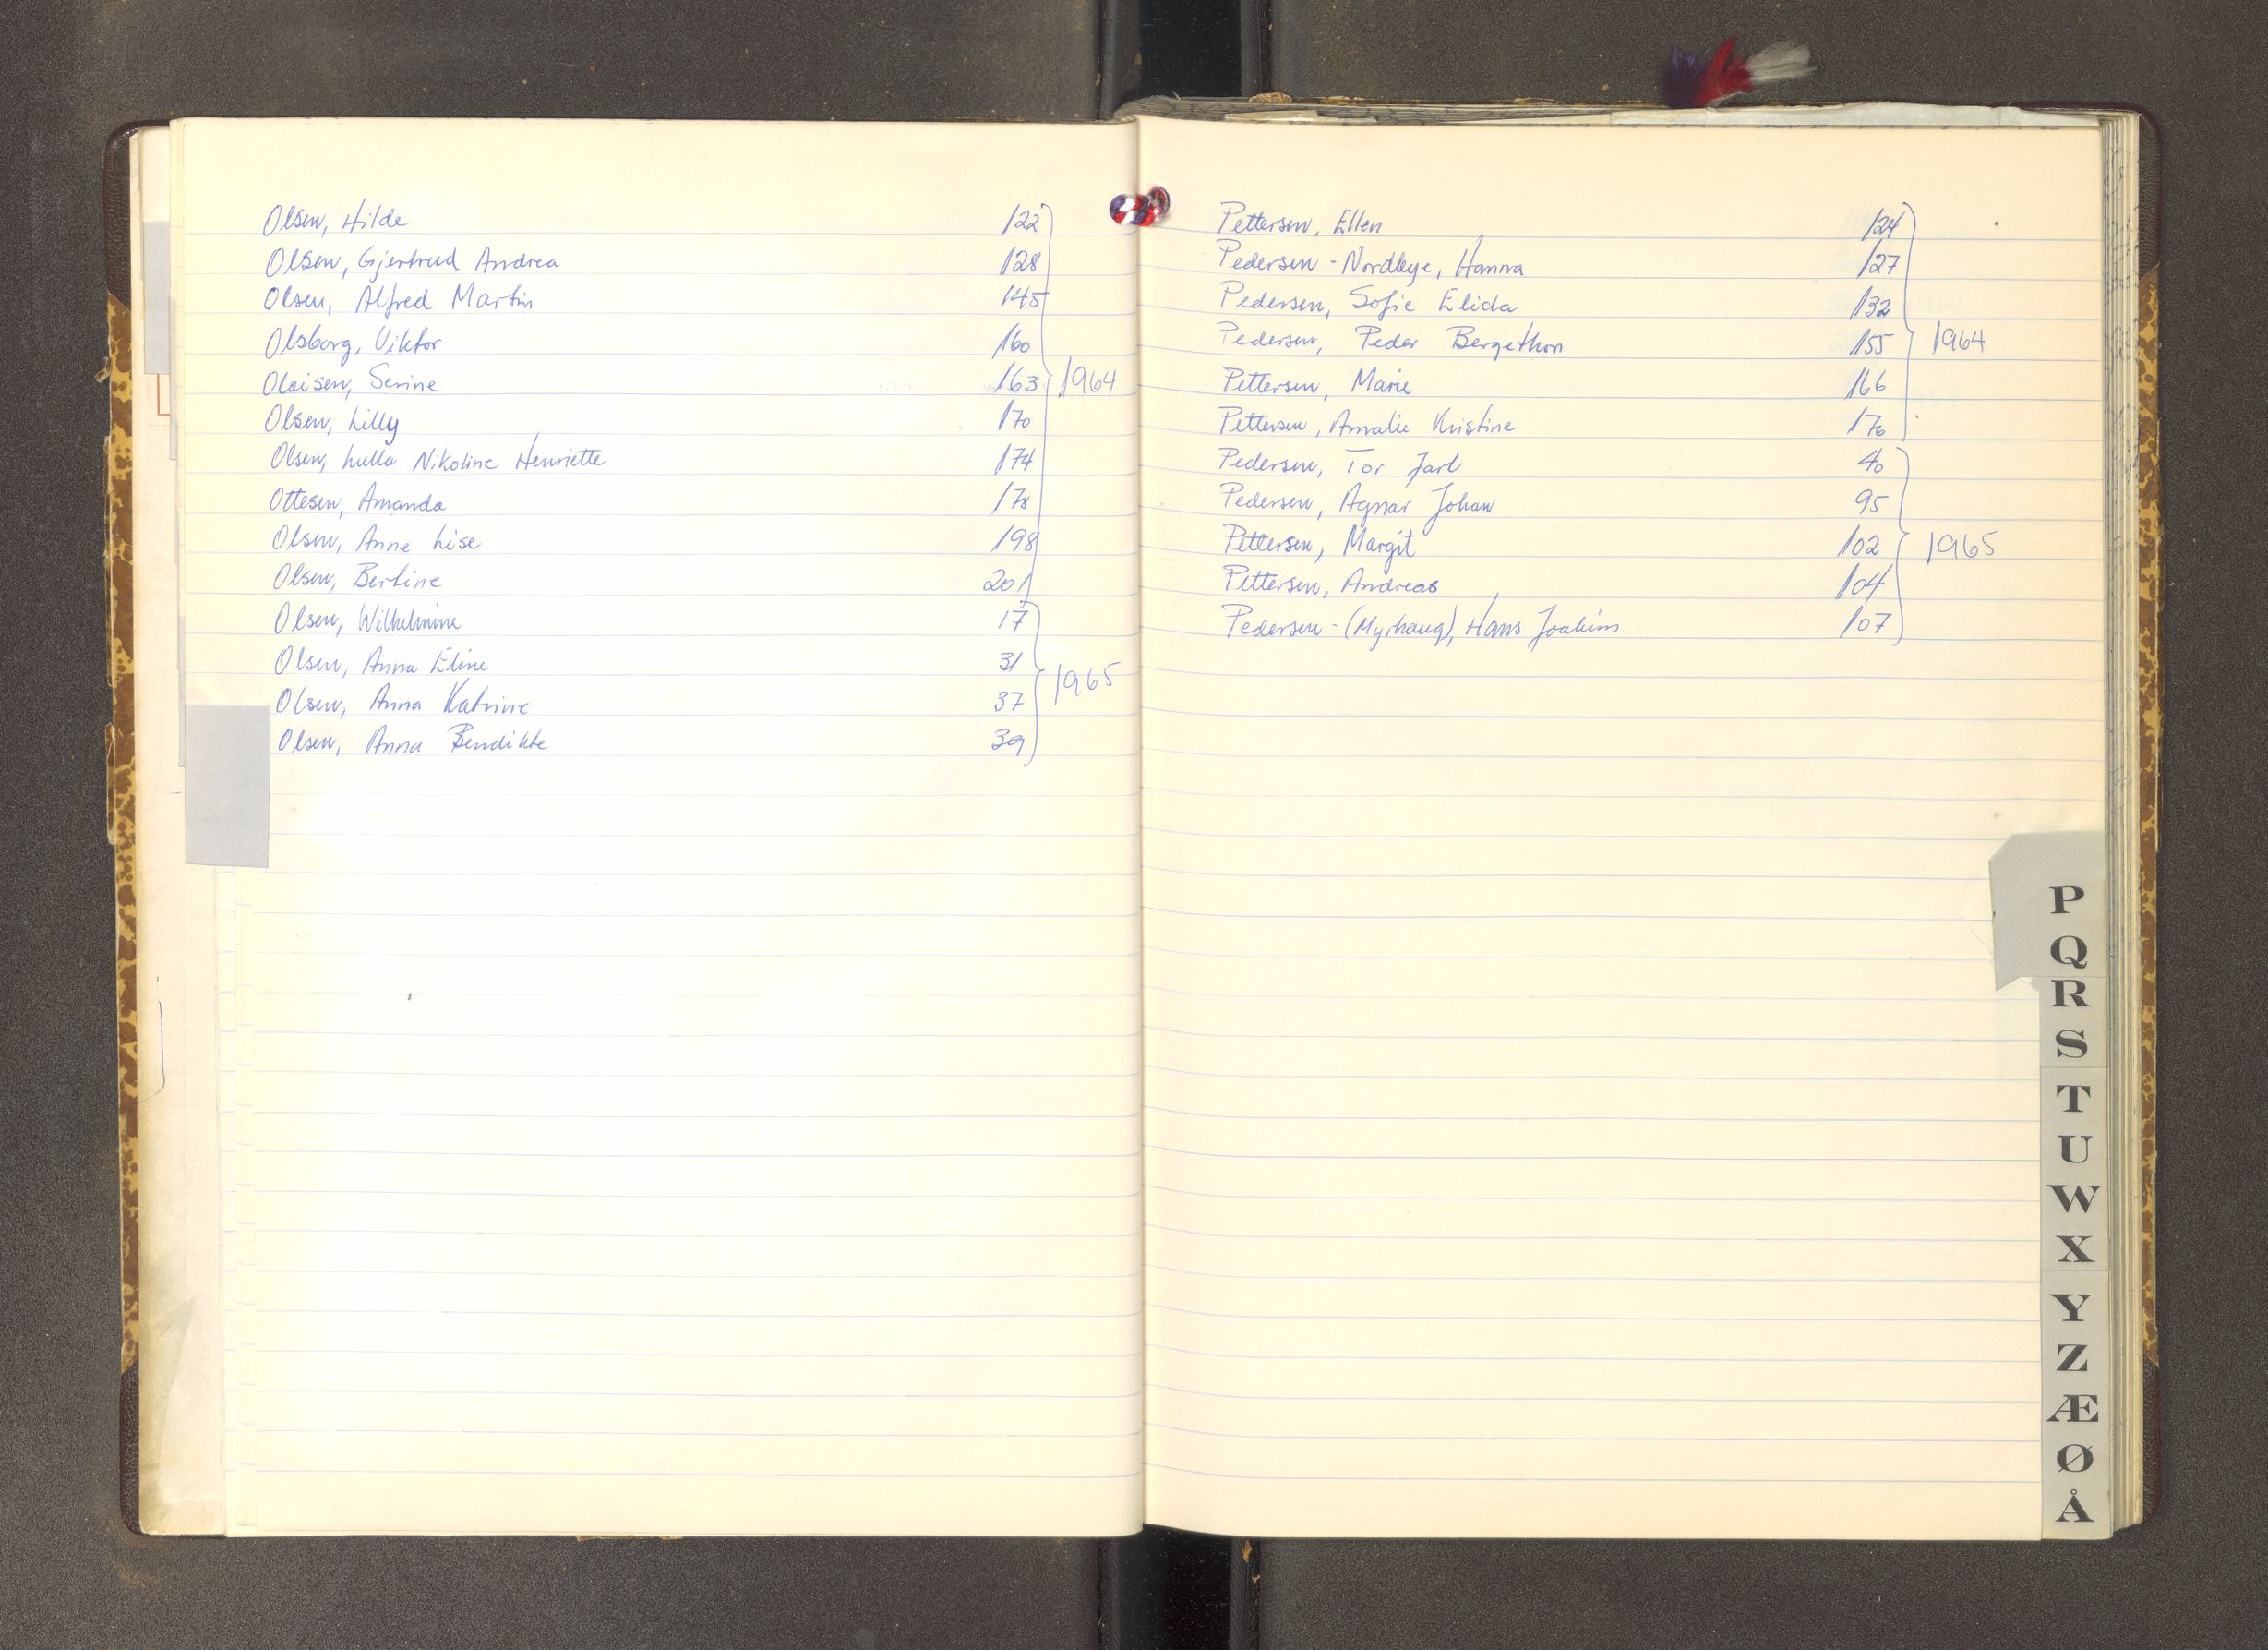 Olsen, Hilde 122
Olsen, Gjertrud Andrea 128
Olsen, Alfred Martin 145
Olsborg, Viktor 160
Olaisen, Serine 163 1964
Olsen, Lilly 170
Olsen, Lulla Nikoline Henriette 174
Ottesen, Amanda 178
Olsen, Anne Lise 198
Olsen, Bertine 201
Olsen, Wilhelmine 17
Olsen, Anna Eline 31
Olsen, Anna Katrine 37 1965
Olsen, Anna Bendikte 39
Pettersen, Ellen 124
Pedersen - Nordbye, Hanna 127
Pedersen, Sofie Elida 132
Pedersen, Peder Bergethon 155 1964
Pettersen, Marie 166
Pettersen, Amalie Kristine 176
Pedersen, Tor Jarl 40
Pedersen, Agnar Johan 95
Pettersen, Margit 102 1965
Pettersen, Andreas 104
Pedersen - (Myrhaug), Hans Joakim 107
P
Q
R
S
T
U
W
X
Y
Z
Æ
Ø
Å